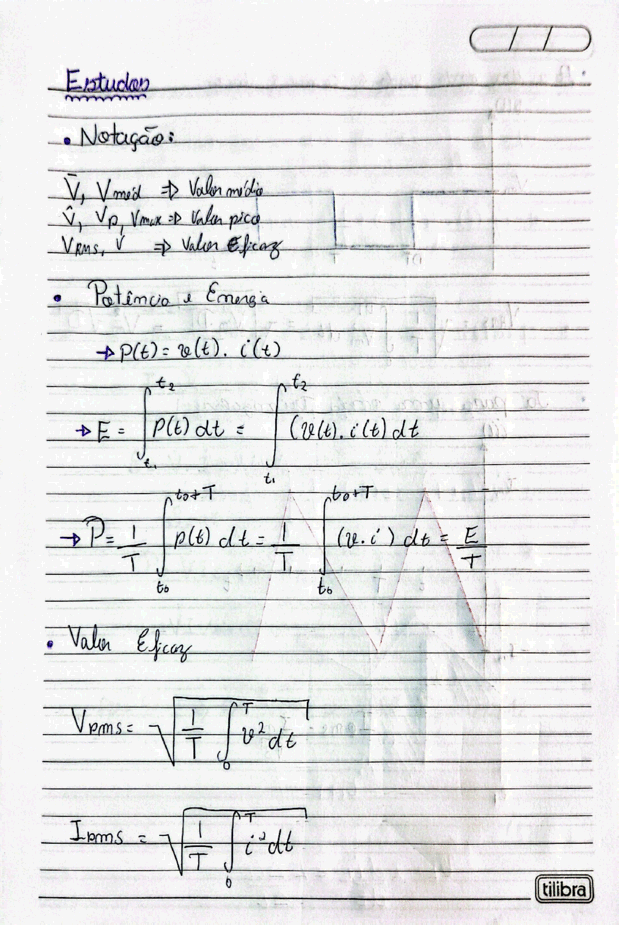 Estudos
• Notação:
V̄, Vméd => Valor médio
V̂, Vp, Vmax => Valor pico
VRMS, V => Valor Eficaz
• Potência e Energia
→ P(t) = v(t) . i(t)
→ E = ∫ₜ₁ᵗ² P(t) dt = ∫ₜ₁ᵗ² (v(t) . i(t) dt
→ P̄ = 1/T ∫ₜ₀ᵗ⁰⁺ᵀ p(t) dt = 1/T ∫ₜ₀ᵗ⁰⁺ᵀ (v . i) dt = E/T
• Valor Eficaz
VRMS = √(1/T ∫₀ᵀ v² dt)
IRMS = √(1/T ∫₀ᵀ i² dt)
tilibra